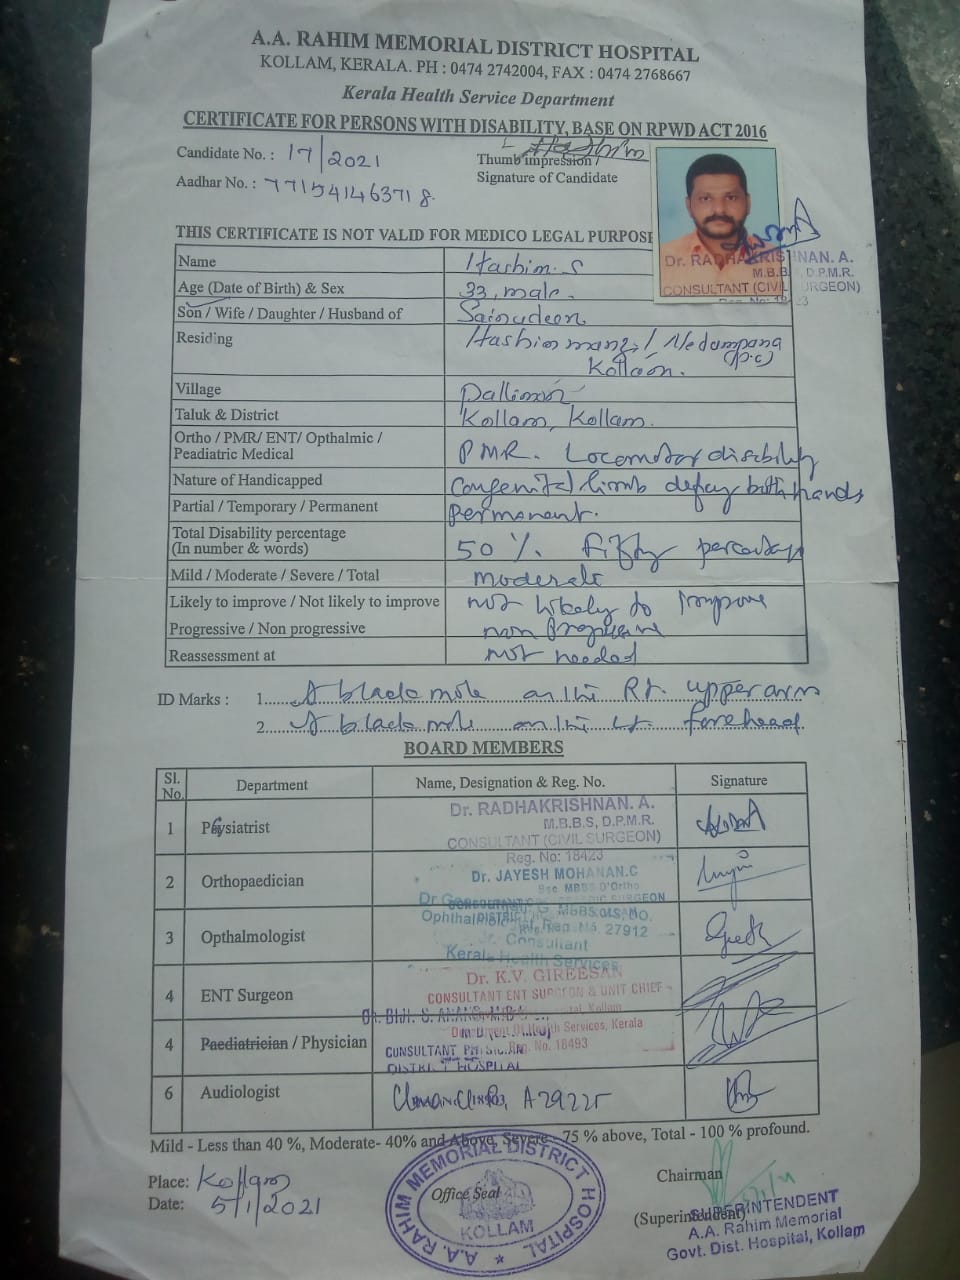 A.A. RAHIM MEMORIAL DISTRICT HOSPITAL
KOLLAM, KERALA. PH : 0474 2742004, FAX : 0474 2768667
Kerala Health Service Department
CERTIFICATE FOR PERSONS WITH DISABILITY, BASE ON RPWD ACT 2016
Candidate No. : 17/2021
Hashim
Thumb impression /
Signature of Candidate
Aadhar No. : 771541463718
THIS CERTIFICATE IS NOT VALID FOR MEDICO LEGAL PURPOSE
Dr. RADHAKRISHNAN. A.
M.B.B. , D.P.M.R.
CONSULTANT (CIVIL SURGEON)
Name Hashim. S
Age (Date of Birth) & Sex 33, male.
Son / Wife / Daughter / Husband of Sainudeen
Residing Nedumpana
(P.O)
Kollam.
Village
Taluk & District Kollam, Kollam.
Ortho / PMR/ ENT/ Opthalmic /
Peadiatric Medical PMR. Locomotor disability
Nature of Handicapped Congenital limb both hands
Partial / Temporary / Permanent permanent.
Total Disability percentage
(In number & words) 50 %. fifty percentage
Mild / Moderate / Severe / Total moderate
Likely to improve / Not likely to improve not likely to improve
Progressive / Non progressive non progressive
Reassessment at not needed
ID Marks : 1. A black mole on the Rt. upper arm
2. A black mole on the Lt. forehead
BOARD MEMBERS
Sl. No. Department Name, Designation & Reg. No. Signature
1 Dr. RADHAKRISHNAN. A.
M.B.B.S, D.P.M.R.
CONSULTANT (CIVIL SURGEON)
Reg. No: 18423
2 Orthopaedician Dr. JAYESH MOHANAN.C
Bsc MBBS D'Ortho
SURGEON
3 Opthalmologist 27912
Jr. Consultant
Kerala Health Services
4 ENT Surgeon Dr. K.V. GIREESAN
CONSULTANT ENT SURGEON & UNIT CHIEF
Kollam
Department Of Health Services, Kerala
Reg. No. 18493
4 Paediatrician / Physician
CONSULTANT PHYSICIAN
DISTRICT HOSPITAL
6 Audiologist A29225
Mild - Less than 40 %, Moderate- 40% and Above, Severe - 75 % above, Total - 100 % profound.
Place: Kollam
Date: 5/1/2021
A.A. RAHIM MEMORIAL DISTRICT HOSPITAL
Office Seal
KOLLAM
Chairman
(Superintendent)
SUPERINTENDENT
A.A. Rahim Memorial
Govt. Dist. Hospital, Kollam